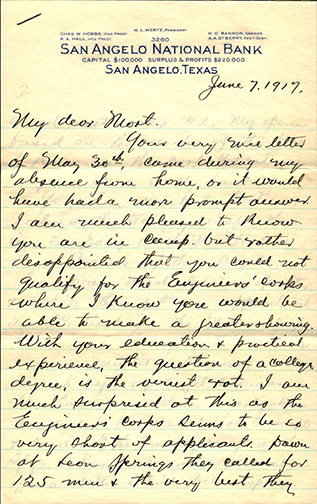 CHAS W HOBBS, VICE PREST H. L. MERTZ, PRESIDENT H O'BANNON, CASHIER
R. A. HALL, VICE PREST. 3260 A.A. DEBERRY, ASST. CASH.
SAN ANGELO NATIONAL BANK
CAPITAL $100.000 SURPLUS & PROFITS $220.000
SAN ANGELO, TEXAS
June 7. 1917.
My dear Most.
Your very nice letter
of May 30th, came during my
absence from home, or it would
have had a mor prompt answer.
I am much pleased to know
you are in camp. but rather
disappointed that you could not
qualify for the Engineers' corps
where I know you would be
able to make a greater showing.
With your education & practical
experience, the question of a college
degree, is the veriest rot. I am
much surprised at this as the
Engineers corps seems to be so
very short of applicants. Down
at Leon Springs they called for
125 men & the very best they